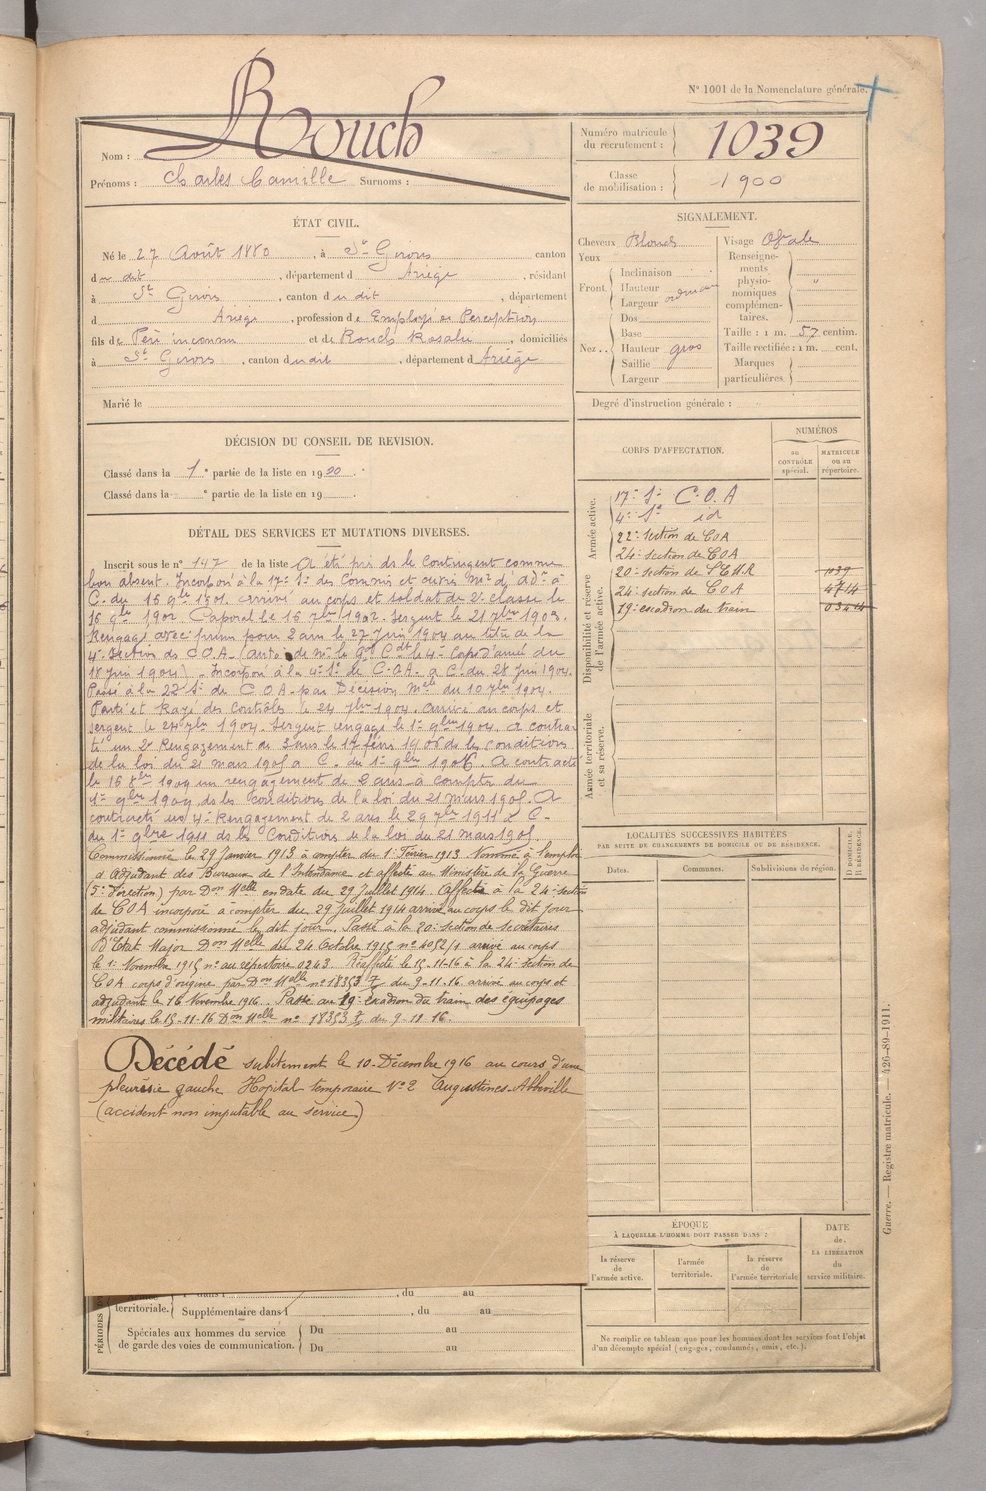 N° 1001 de la Nomenclature générale.
Rouch
Nom :
Prénoms : Charles Camille Surnoms :
Numéro matricule du recrutement : 1039
Classe de mobilisation : 1900
ÉTAT CIVIL.
Né le 27 Août 1880, à St Girons canton
du dit, département d Ariège, résidant
à St Girons, canton du dit, département
d Ariège, profession de Employé de Perception
fils de Père inconnu et de Rouch Rosalie, domiciliés
à St Girons, canton du dit, département d Ariège
Marié le
SIGNALEMENT.
Cheveux Blonds
Yeux
Front. Inclinaison
Hauteur
Largeur ordinaire
Nez.. Dos
Base
Hauteur gros
Saillie
Largeur
Visage Ovale
Renseignements physionomiques complémentaires. "
Taille : 1 m. 57 centim.
Taille rectifiée : 1 m. cent.
Marques particulières.
Degré d'instruction générale :
DÉCISION DU CONSEIL DE REVISION.
Classé dans la 1e partie de la liste en 1900.
Classé dans la e partie de la liste en 19
DÉTAIL DES SERVICES ET MUTATIONS DIVERSES.
Inscrit sous le n° 147 de la liste A été pris ds le contingent comme
bon absent. Incorporé à la 17e Son des Commis et ouvriers mres d'Adon à
C. du 16 9bre 1901. Arrivé au corps et soldat de 2e classe le
16 9bre 1901. Caporal le 16 7bre 1902. Sergent le 21 7bre 1903.
Rengagé avec prime pour 2 ans le 27 Juin 1904 au titre de la
4e Section de C.O.A. (auton de Mr le Gal Cdt le 4e Corps d'armée du
18 Juin 1904) - Incorporé à la 4e Son de C.O.A. à C. du 28 Juin 1904.
Passé à la 22e Son de C.O.A. par Décision Melle du 10 7bre 1904.
Parti et Rayé des Contrôles le 24 7bre 1904. Arrivé au corps et
sergent le 24 7bre 1904. Sergent rengagé le 1er 9bre 1904. A contrac-
té un 2e Rengagement de 3 ans le 17 févr 1906 ds les conditions
de la loi du 21 mars 1905 à C. du 1er 9bre 1906. A contracté
le 16 8bre 1909 un rengagement de 2 ans à compter du
1er 9bre 1909 ds les conditions de la loi du 21 mars 1905. A
contracté un 4e Rengagement de 2 ans le 29 7bre 1911 à C.
du 1er 9bre 1911 ds les Conditions de la loi du 21 mars 1905.
Commissionné le 29 Janvier 1913 à compter du 1er Février 1913. Nommé à l'emploi
d'Adjudant des Bureaux de l'Intendance et affecté au Ministère de la Guerre
(5e Direction) par Don Melle en date du 29 Juillet 1914. Affecté à la 24e section
de COA incorporé à compter du 29 Juillet 1914 arrivé au corps le dit jour
adjudant commissionné le dit jour. Passé à la 20e section de secrétaires
D'Etat Major Don Melle du 24 Octobre 1915 n° 4052/1 arrivé au corps
le 1er Novembre 1915 n° au répertoire 0243. Réaffecté le 15-11-16 à la 24e section de
COA corps d'origine par Don Melle n° 18353 du 9-11-16. arrivé au corps et
adjudant le 16 Novembre 1916. Passé au 19e escadron du train des équipages
militaires le 15-11-16 Don Melle n° 18353 du 9-11-16.
Décédé subitement le 10 Décembre 1916 au cours d'une
pleurésie gauche Hopital temporaire N° 2 Augustines-Abbeville
(accident non imputable au service)
CORPS D'AFFECTATION.
NUMÉROS
au CONTRÔLE spécial.
MATRICULE ou au répertoire.
Armée active.
17e Son C.O.A
4e Son id
22e section de COA
24e section de COA
Disponibilité et réserve de l'armée active.
20e section de S.E.M.R 1039
24e section de COA 4714
19e escadron du train
Armée territoriale et sa réserve.
LOCALITÉS SUCCESSIVES HABITÉES
PAR SUITE DE CHANGEMENTS DE DOMICILE OU DE RÉSIDENCE.
Dates. Communes. Subdivisions de région.
D DOMICILE.
R RÉSIDENCE.
ÉPOQUE
À LAQUELLE L'HOMME DOIT PASSER DANS :
la réserve de l'armée active.
l'armée territoriale.
la réserve de l'armée territoriale
DATE de LA LIBÉRATION du service militaire.
Ne remplir ce tableau que pour les hommes dont les services font l'objet
d'un décompte spécial (engagés, condamnés, omis, etc.).
PÉRIODES
territoriale. Supplémentaire dans l , du au
Spéciales aux hommes du service de garde des voies de communication.
Du au
Du au
Guerre. — Registre matricule. — 426-89-1911.